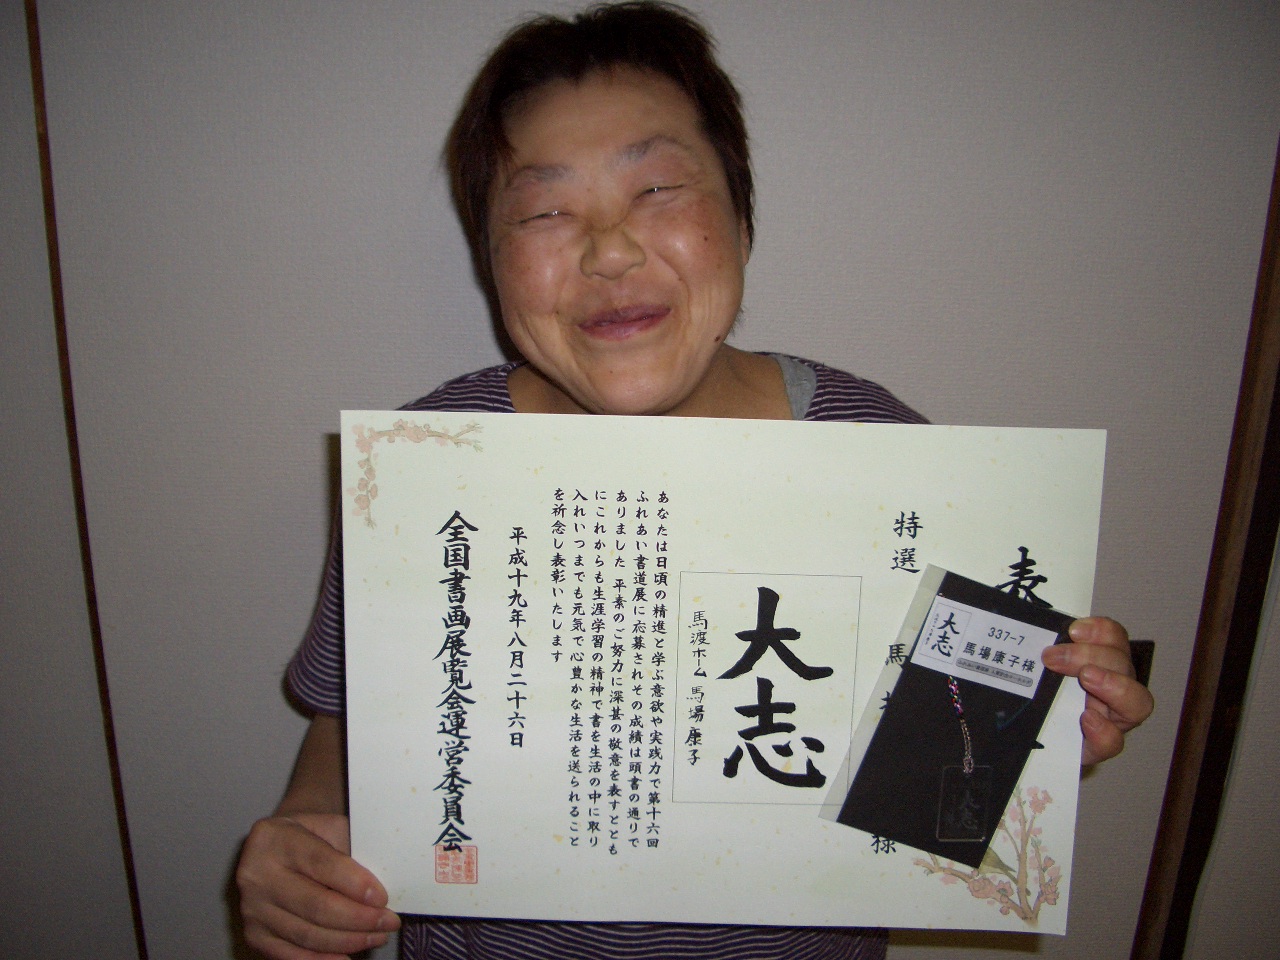 表
特選
馬
様
大志
馬渡ホーム 馬場康子
あなたは日頃の精進と学ぶ意欲や実践力で第十六回
ふれあい書道展に応募されその成績は頭書の通りで
ありました 平素のご努力に深甚の敬意を表すととも
にこれからも生涯学習の精神で書を生活の中に取り
入れいつまでも元気で心豊かな生活を送られること
を祈念し表彰いたします
平成十九年八月二十六日
全国書画展覧会運営委員会
大志
337-7
馬場康子様
大志